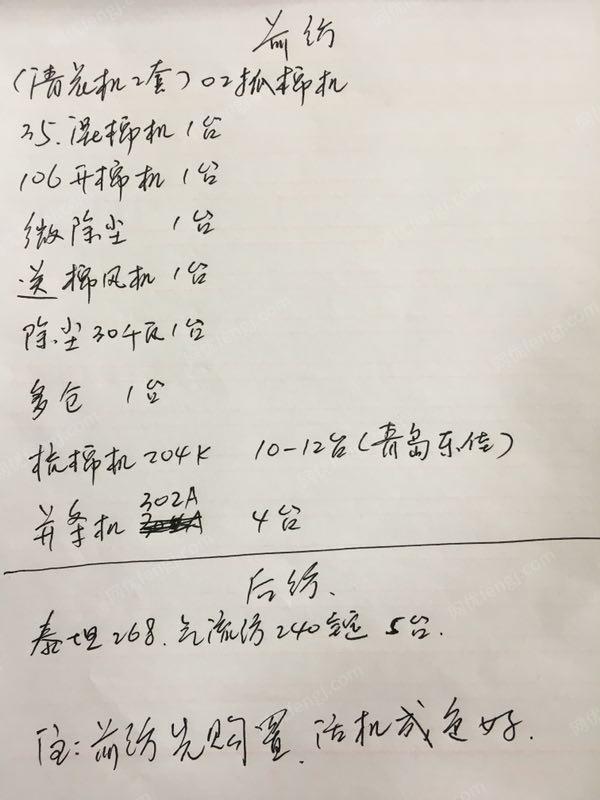 前纺
(清花机2套)02抓棉机
35.混棉机1台
106开棉机1台
微除尘 1台
送棉风机1台
除尘30千瓦1台
多仓 1台
梳棉机204K 10-12台(青岛东佳)
302A
并条机 4台
后纺.
泰坦268.气流纺240锭5台.
注:前纺先购置.活机成色好.